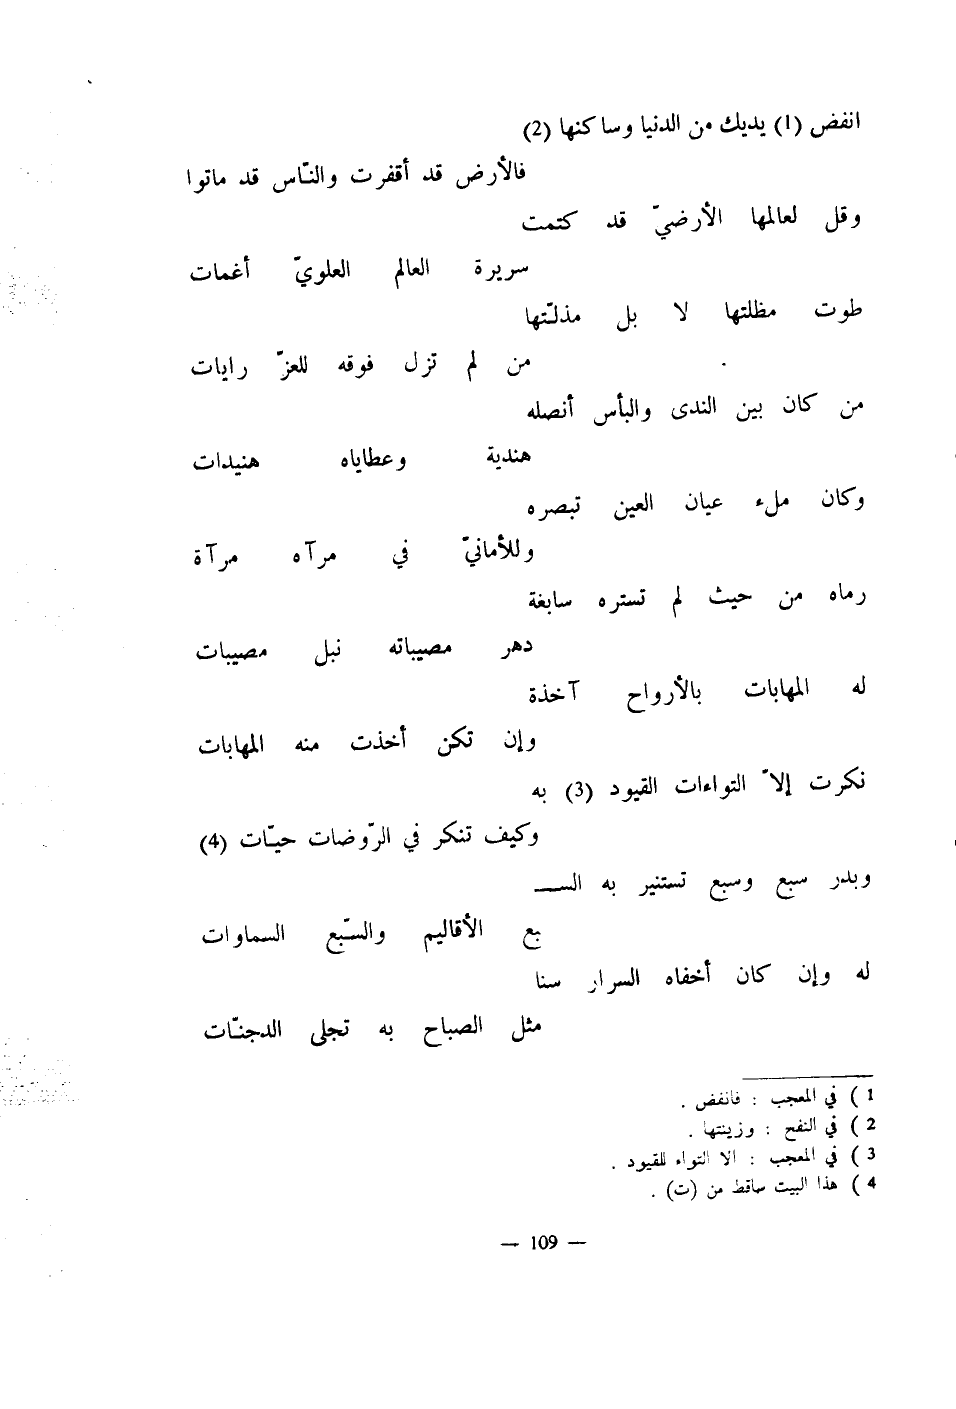 انفض (1) يديك من الدنيا وساكنها (2)
فالأرض قد أقفرت والنّاس قد ماتوا
وقل لعالمها الأرضيّ قد كتمت
سريرة العالم العلويّ أغمات
طوت مظلتها لا بل مذلّتها
من لم تزل فوقه للعزّ رايات
من كان بين الندى والبأس أنصله
هندية وعطاياه هنيدات
وكان ملء عيان العين تبصره
وللأمانيّ في مرآه مرآة
رماه من حيث لم تستره سابغة
دهر مصيباته نبل مصيبات
له المهابات بالأرواح آخذة
وإن تكن أخذت منه المهابات
نكرت إلاّ التواءات القيود (3) به
وكيف تنكر في الرّوضات حيّات (4)
وبدر سبع وسبع تستنير به الســـ
بع الأقاليم والسّبع السماوات
له وإن كان أخفاه السرار سنا
مثل الصباح به تجلى الدجنّات
1 ) في المعجب : فانفض .
2 ) في النفح : وزينتها .
3 ) في المعجب : الا التواء للقيود .
4 ) هذا البيت ساقط من (ت) .
— 109 —